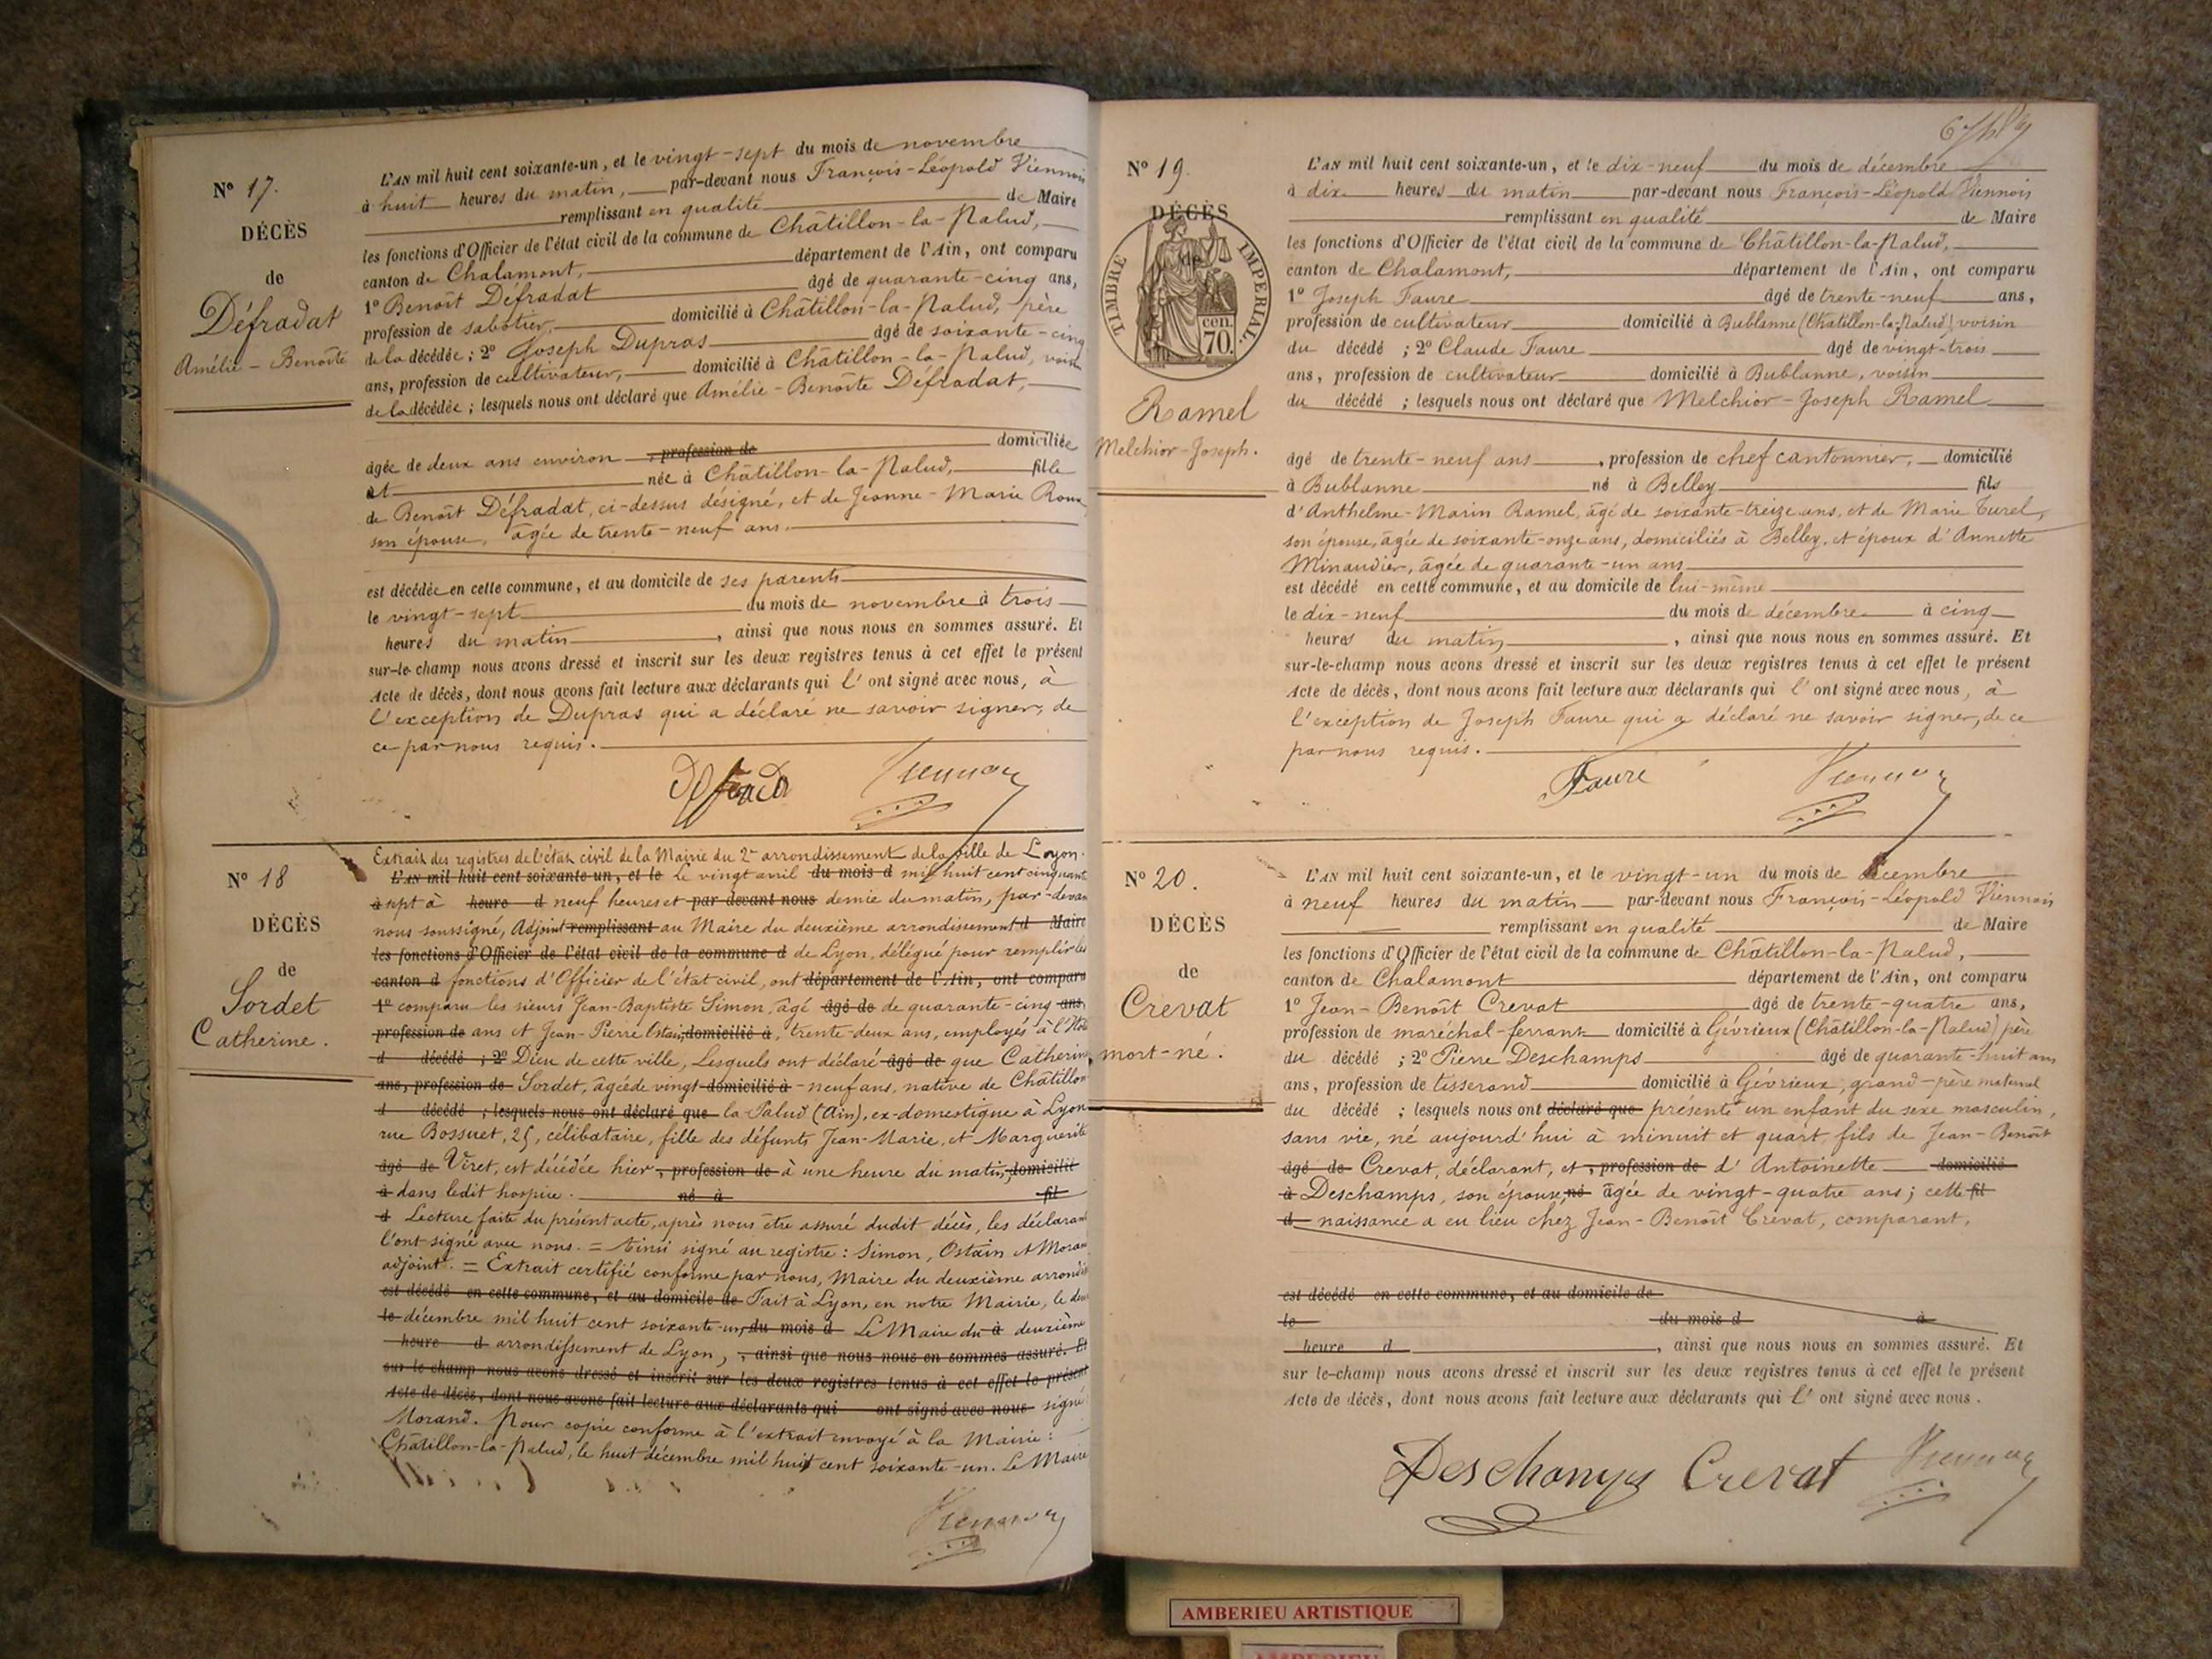 N° 17.
DÉCÈS
de
Défradat
Amélie - Benoîte
L'AN mil huit cent soixante-un, et le vingt-sept du mois de novembre
à huit heures du matin, par-devant nous François-Léopold Viennois
remplissant en qualité de Maire
les fonctions d'Officier de l'état civil de la commune de Châtillon-la-Palud,
canton de Chalamont, département de l'Ain, ont comparu
1° Benoît Défradat âgé de quarante-cinq ans,
profession de sabotier, domicilié à Châtillon-la-Palud, père
de la décédée ; 2° Joseph Dupras âgé de soixante-cinq
ans, profession de cultivateur, domicilié à Châtillon-la-Palud, voisin
de la décédée ; lesquels nous ont déclaré que Amélie-Benoîte Défradat,
âgée de deux ans environ , profession de domiciliée
et née à Châtillon-la-Palud, fille
de Benoît Défradat, ci-dessus désigné, et de Jeanne-Marie Roux
son épouse, âgée de trente-neuf ans.
est décédée en cette commune, et au domicile de ses parents
le vingt-sept du mois de novembre à trois
heures du matin , ainsi que nous nous en sommes assuré. Et
sur-le-champ nous avons dressé et inscrit sur les deux registres tenus à cet effet le présent
Acte de décès, dont nous avons fait lecture aux déclarants qui l'ont signé avec nous, à
l'exception de Dupras qui a déclaré ne savoir signer, de
ce par nous requis.
Viennois
N° 18
DÉCÈS
de
Sordet
Catherine.
Extrait des registres de l'état civil de la Mairie du 2e arrondissement de la ville de Lyon.
L'AN mil huit cent soixante-un, et le Le vingt avril du mois d mil huit cent cinquante
à sept à heure d neuf heures et par-devant nous demie du matin, par-devant
nous soussigné, Adjoint remplissant au Maire du deuxième arrondissement d Maire
les fonctions d'Officier de l'état civil de la commune d de Lyon, délégué pour remplir les
canton d fonctions d'Officier de l'état civil, ont département de l'Ain, ont comparu
1° comparu les sieurs Jean-Baptiste Simon, âgé âgé de de quarante-cinq ans,
profession de ans et Jean-Pierre Ostain, domicilié à, trente-deux ans, employés à l'Hôtel
d décédé ; 2° Dieu de cette ville, Lesquels ont déclaré âgé de que Catherine
ans, profession de Sordet, âgée de vingt domicilié à -neuf ans, native de Châtillon
d décédé ; lesquels nous ont déclaré que la-Palud (Ain), ex-domestique à Lyon
rue Bossuet, 25, célibataire, fille des défunts Jean-Marie, et Marguerite
âgé de Viret, est décédée hier , profession de à une heure du matin, domicilié
à dans ledit hospice. né à fil
d Lecture faite du présent acte, après nous être assuré dudit décès, les déclarants
l'ont signé avec nous. = Ainsi signé au registre : Simon, Ostain et Morand
adjoint. = Extrait certifié conforme par nous, Maire du deuxième arrondist
est décédé en cette commune, et au domicile de Fait à Lyon, en notre Mairie, le deux
le décembre mil huit cent soixante-un, du mois d Le Maire du à deuxième
heure d arrondissement de Lyon, , ainsi que nous nous en sommes assuré. Et
sur-le-champ nous avons dressé et inscrit sur les deux registres tenus à cet effet le présent
Acte de décès, dont nous avons fait lecture aux déclarants qui ont signé avec nous signé
Morand. Pour copie conforme à l'extrait envoyé à la Mairie :
Châtillon-la-Palud, le huit décembre mil huit cent soixante-un. Le Maire
Viennois
N° 19.
DÉCÈS
de
TIMBRE IMPÉRIAL
70 cen.
Ramel
Melchior-Joseph.
L'AN mil huit cent soixante-un, et le dix-neuf du mois de décembre
à dix heures du matin par-devant nous François-Léopold Viennois
remplissant en qualité de Maire
les fonctions d'Officier de l'état civil de la commune de Châtillon-la-Palud,
canton de Chalamont, département de l'Ain, ont comparu
1° Joseph Faure âgé de trente-neuf ans,
profession de cultivateur domicilié à Bublanne (Châtillon-la-Palud) voisin
du décédé ; 2° Claude Faure âgé de vingt-trois
ans, profession de cultivateur domicilié à Bublanne, voisin
du décédé ; lesquels nous ont déclaré que Melchior-Joseph Ramel
âgé de trente-neuf ans , profession de chef cantonnier, domicilié
à Bublanne né à Belley fils
d'Anthelme-Marin Ramel, âgé de soixante-treize ans, et de Marie Curel,
son épouse, âgée de soixante-onze ans, domiciliés à Belley, et époux d'Annette
Minaudier, âgée de quarante-un ans
est décédé en cette commune, et au domicile de lui-même
le dix-neuf du mois de décembre à cinq
heures du matin , ainsi que nous nous en sommes assuré. Et
sur-le-champ nous avons dressé et inscrit sur les deux registres tenus à cet effet le présent
Acte de décès, dont nous avons fait lecture aux déclarants qui l'ont signé avec nous, à
l'exception de Joseph Faure qui a déclaré ne savoir signer, de ce
par nous requis.
Faure Viennois
N° 20.
DÉCÈS
de
Crevat
mort-né.
L'AN mil huit cent soixante-un, et le vingt-un du mois de décembre
à neuf heures du matin par-devant nous François-Léopold Viennois
remplissant en qualité de Maire
les fonctions d'Officier de l'état civil de la commune de Châtillon-la-Palud,
canton de Chalamont département de l'Ain, ont comparu
1° Jean-Benoît Crevat âgé de trente-quatre ans,
profession de maréchal-ferrant domicilié à Gévrieux (Châtillon-la-Palud) père
du décédé ; 2° Pierre Deschamps âgé de quarante-huit ans
ans, profession de tisserand domicilié à Gévrieux, grand-père maternel
du décédé ; lesquels nous ont déclaré que présenté un enfant du sexe masculin,
sans vie, né aujourd'hui à minuit et quart, fils de Jean-Benoît
âgé de Crevat, déclarant, et , profession de d'Antoinette domicilié
à Deschamps, son épouse, né âgée de vingt-quatre ans; cette fil
d naissance a eu lieu chez Jean-Benoît Crevat, comparant.
est décédé en cette commune, et au domicile de
le du mois d à
heure d , ainsi que nous nous en sommes assuré. Et
sur le-champ nous avons dressé et inscrit sur les deux registres tenus à cet effet le présent
Acte de décès, dont nous avons fait lecture aux déclarants qui l'ont signé avec nous.
Deschamps Crevat Viennois
AMBERIEU ARTISTIQUE
AMBERIEU